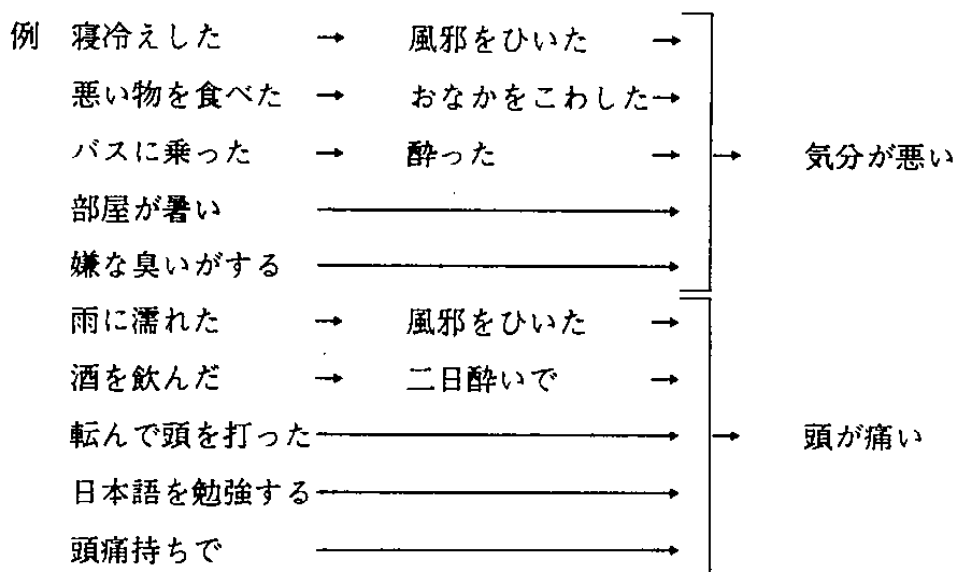 例 寝冷えした → 風邪をひいた →
悪い物を食べた → おなかをこわした→
バスに乗った → 酔った → → 気分が悪い
部屋が暑い →
嫌な臭いがする →
雨に濡れた → 風邪をひいた →
酒を飲んだ → 二日酔いで →
転んで頭を打った → → 頭が痛い
日本語を勉強する →
頭痛持ちで →